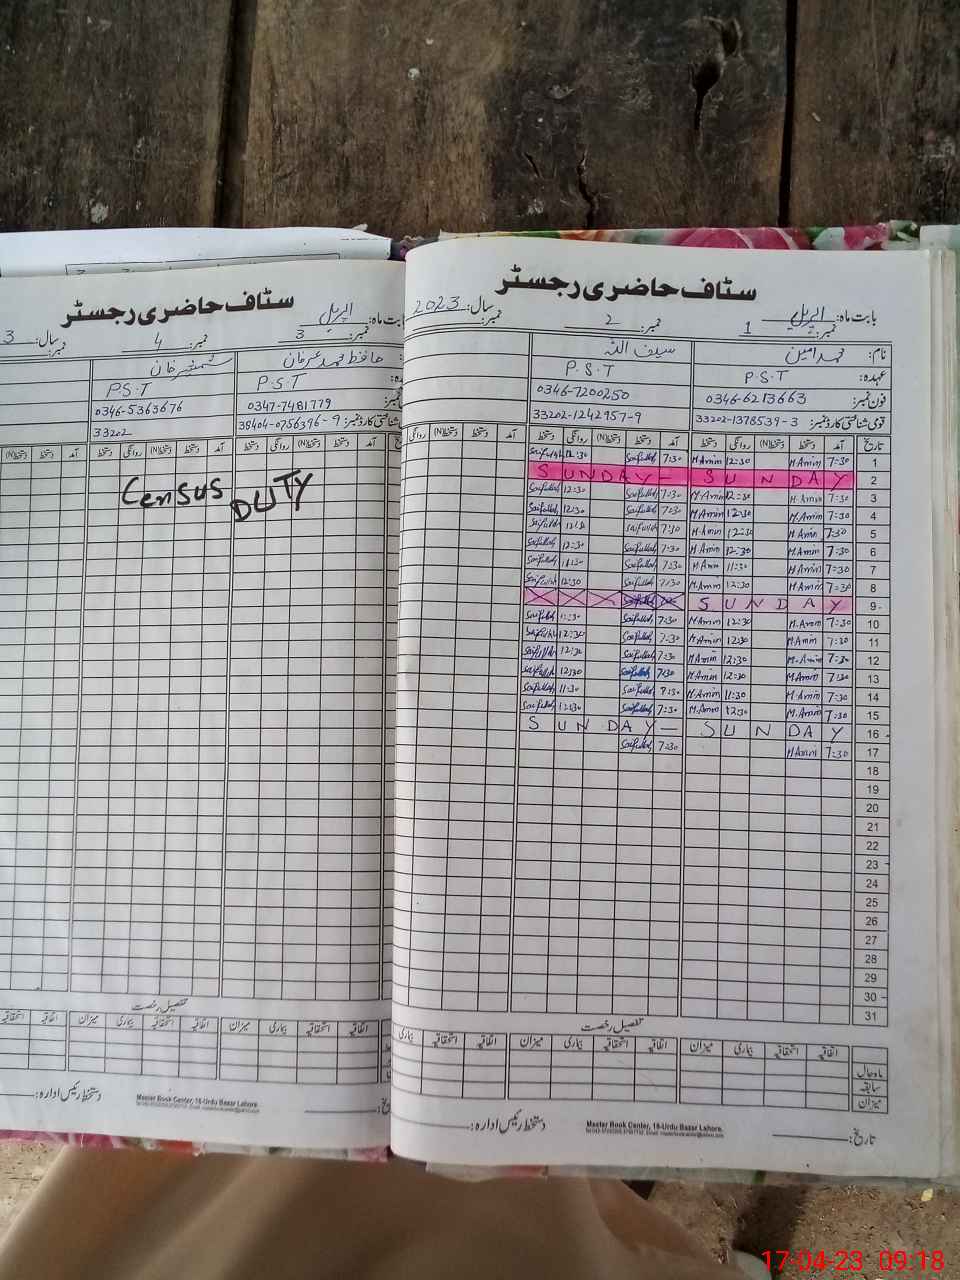 سٹاف حاضری رجسٹر
بابت ماہ: اپریل سال: 2023
نمبر: 1 2 نمبر:
نام: محمد امین سیف اللہ
عہدہ: P.S.T P.S.T
فون نمبر: 0346-6213663 0346-7200250
قومی شناختی کارڈ نمبر: 33202-1378539-3 33202-1242957-9
تاریخ آمد دستخط دستخط(N) روانگی دستخط آمد دستخط دستخط(N) روانگی دستخط آمد دستخط دستخط(N) روانگی
1 7:30 M.Amin 12:30 M.Amin 7:30 Saifullah 12:30 Saifullah
2 SUNDAY - SUNDAY
3 7:30 M.Amin 12:30 M.Amin 7:30 Saifullah 12:30 Saifullah
4 7:30 M.Amin 12:30 M.Amin 7:30 Saifullah 12:30 Saifullah
5 7:30 M.Amin 12:30 M.Amin 7:30 Saifullah
6 7:30 M.Amin 12:30 M.Amin 7:30 Saifullah 12:30 Saifullah
7 7:30 M.Amin 11:30 M.Amin 7:30 Saifullah 11:30 Saifullah
8 7:30 M.Amin 12:30 M.Amin 7:30 Saifullah 12:30 Saifullah
9 SUNDAY
10 7:30 M.Amin 12:30 M.Amin 7:30 Saifullah Saifullah
11 7:30 M.Amin 12:30 M.Amin 7:30 Saifullah 12:30 Saifullah
12 7:30 M.Amin 12:30 M.Amin 7:30 Saifullah 12:30 Saifullah
13 7:30 M.Amin 12:30 M.Amin 7:30 Saifullah 12:30 Saifullah
14 7:30 M.Amin 11:30 M.Amin 7:30 Saifullah 11:30 Saifullah
15 7:30 M.Amin 12:30 M.Amin 7:30 Saifullah 12:30 Saifullah
16 SUNDAY - SUNDAY
17 7:30 M.Amin 7:30 Saifullah
18
19
20
21
22
23
24
25
26
27
28
29
30
31
تفصیل رخصت
اتفاقیہ استحقاقیہ بیماری میزان اتفاقیہ استحقاقیہ بیماری میزان اتفاقیہ استحقاقیہ بیماری
ماہ حال
سابقہ
میزان
تاریخ: دستخط رئیس ادارہ:
Master Book Center, 16-Urdu Bazar Lahore.
سٹاف حاضری رجسٹر
بابت ماہ: اپریل سال: 3
نمبر: 3 نمبر: 4 نمبر:
حافظ محمد عرفان شمشیر خان
P.S.T P.S.T
0347-7481779 0346-5363676
38404-0756396-9 33202
آمد دستخط دستخط(N) روانگی دستخط آمد دستخط دستخط(N) روانگی دستخط آمد دستخط دستخط(N)
Census DUTY
تفصیل رخصت
اتفاقیہ استحقاقیہ بیماری میزان اتفاقیہ استحقاقیہ بیماری میزان اتفاقیہ استحقاقیہ
دستخط رئیس ادارہ:
Master Book Center, 16-Urdu Bazar Lahore.
17-04-23 09:18